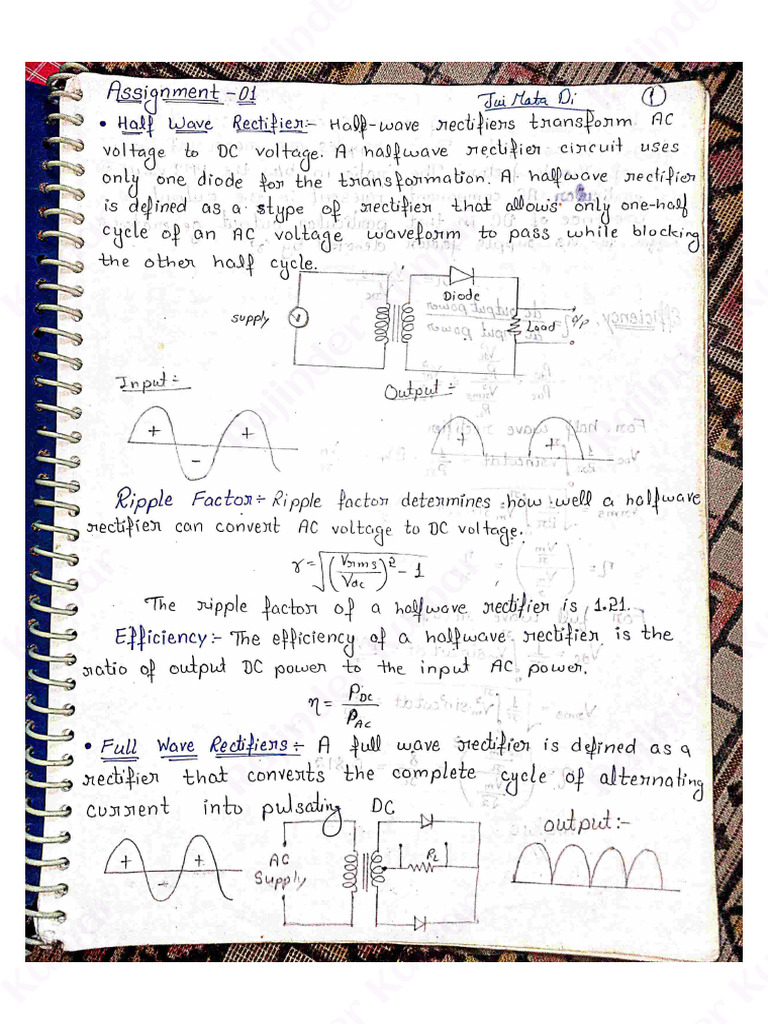 Assignment-01
Jai Mata Di
1
• Half Wave Rectifier:- Half-wave rectifiers transform AC
voltage to DC voltage. A halfwave rectifier circuit uses
only one diode for the transformation. A halfwave rectifier
is defined as a stype of rectifier that allows only one-half
cycle of an AC voltage waveform to pass while blocking
the other half cycle.
Supply
Diode
Load
o/p
Input:-
Output:-
+ - +
+ +
Ripple Factor:- Ripple factor determines how well a halfwave
rectifier can convert AC voltage to DC voltage.
r = √((Vrms/VDC)² - 1
The ripple factor of a halfwave rectifier is 1.21.
Efficiency:- The efficiency of a halfwave rectifier is the
ratio of output DC power to the input AC power.
η = PDC/PAC
• Full Wave Rectifiers:- A full wave rectifier is defined as a
rectifier that converts the complete cycle of alternating
current into pulsating DC
+ - +
AC
Supply
RL
output:-